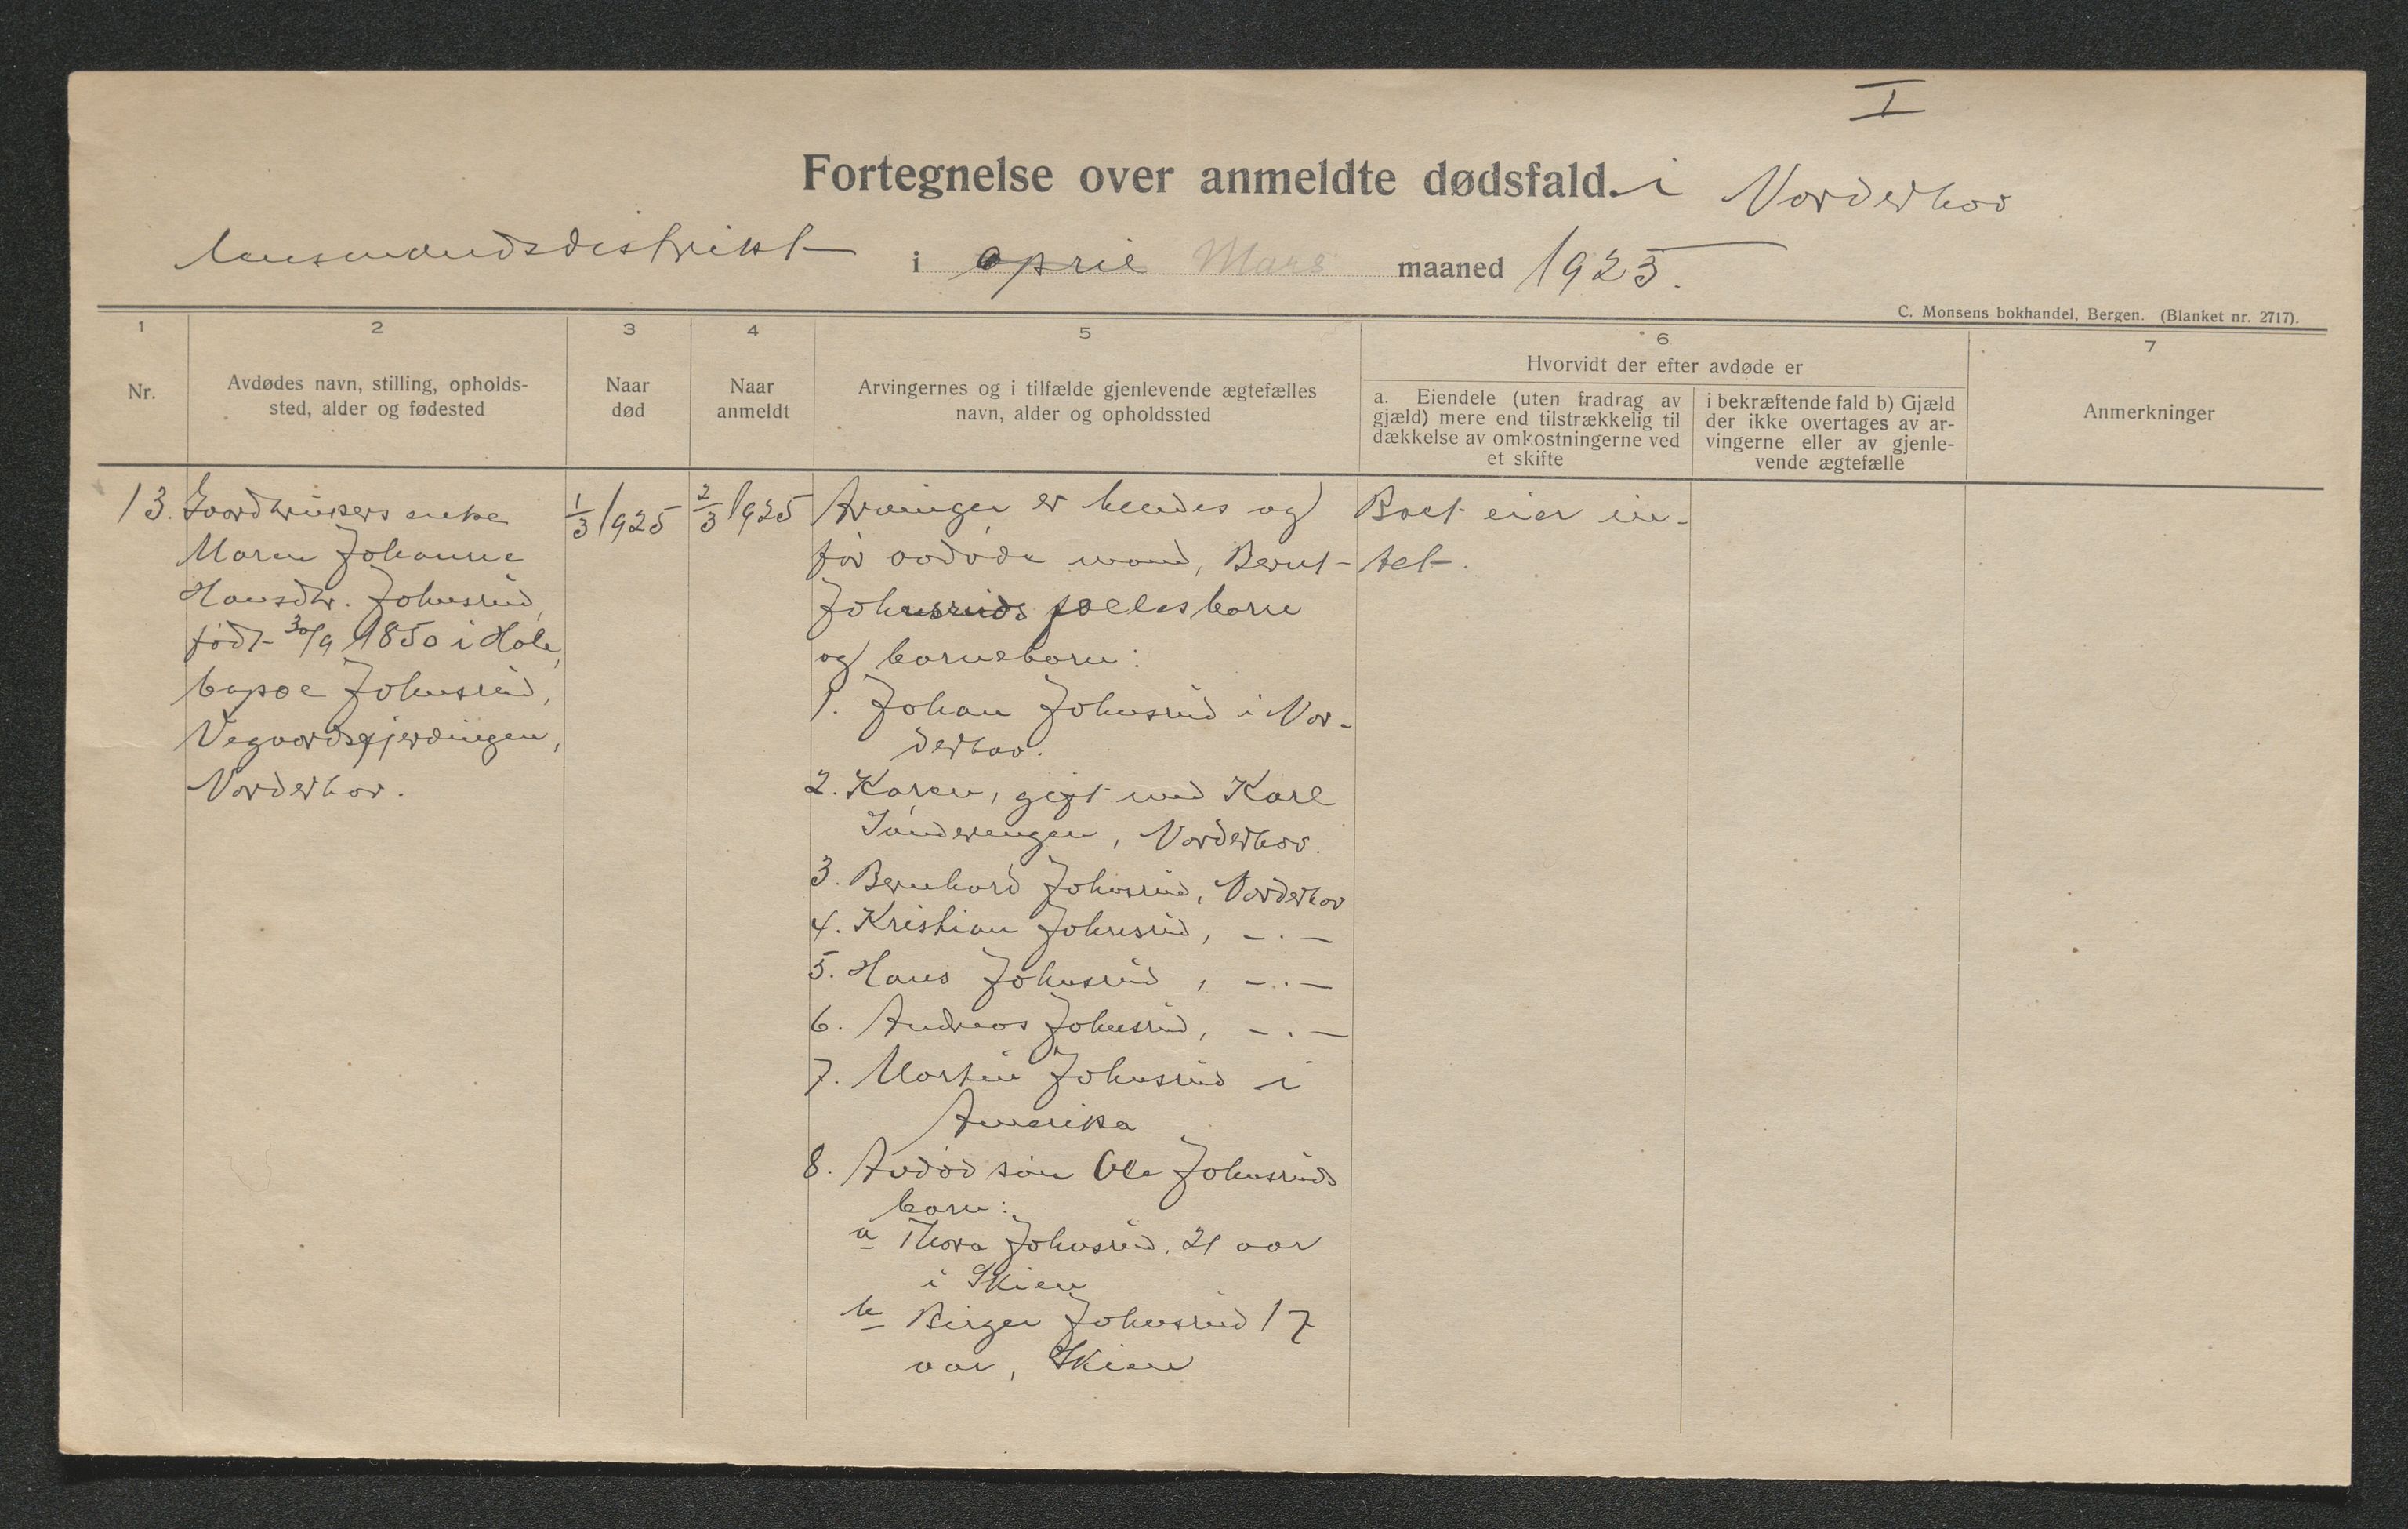 I
Fortegnelse over anmeldte dødsfald. i Norderhov
lensmandsdistrikt i april Mars maaned 1925.
C. Monsens bokhandel, Bergen. (Blanket nr. 2717).
1 2 3 4 5 6 7
Nr.
Avdødes navn, stilling, opholds-
sted, alder og fødested
Naar
død
Naar
anmeldt
Arvingernes og i tilfælde gjenlevende ægtefælles
navn, alder og opholdssted
Hvorvidt der efter avdøde er
a. Eiendele (uten fradrag av
gjæld) mere end tilstrækkelig til
dækkelse av omkostningerne ved
et skifte
i bekræftende fald b) Gjæld
der ikke overtages av ar-
vingerne eller av gjenle-
vende ægtefælle
Anmerkninger
13. Gaardbrukers enke
Maren Johanne
Hansdtr. Johnsrud,
født 30/9 1850 i Hole,
bopæl Johnsrud,
Vegaardsfjerdingen,
Norderhov.
1/3 1925
2/3 1925
Arvinger er hendes og
før avdøde mand, Bernt
Johnsruds fælles barn
og barnebarn:
1. Johan Johnsrud i Nor-
derhov.
2. Karen, gift med Karl
Sønderengen, Norderhov.
3. Bernhard Johnsrud, Norderhov
4. Kristian Johnsrud, -.-
5. Hans Johnsrud, -.-
6. Andreas Johnsrud, -.-
7. Martin Johnsrud i
Amerika
8. Avdød søn Ole Johnsruds
barn:
a Thora Johnsrud, 21 aar
i Skien
b Birger Johnsrud 17
aar, Skien
Boet eier in-
tet.